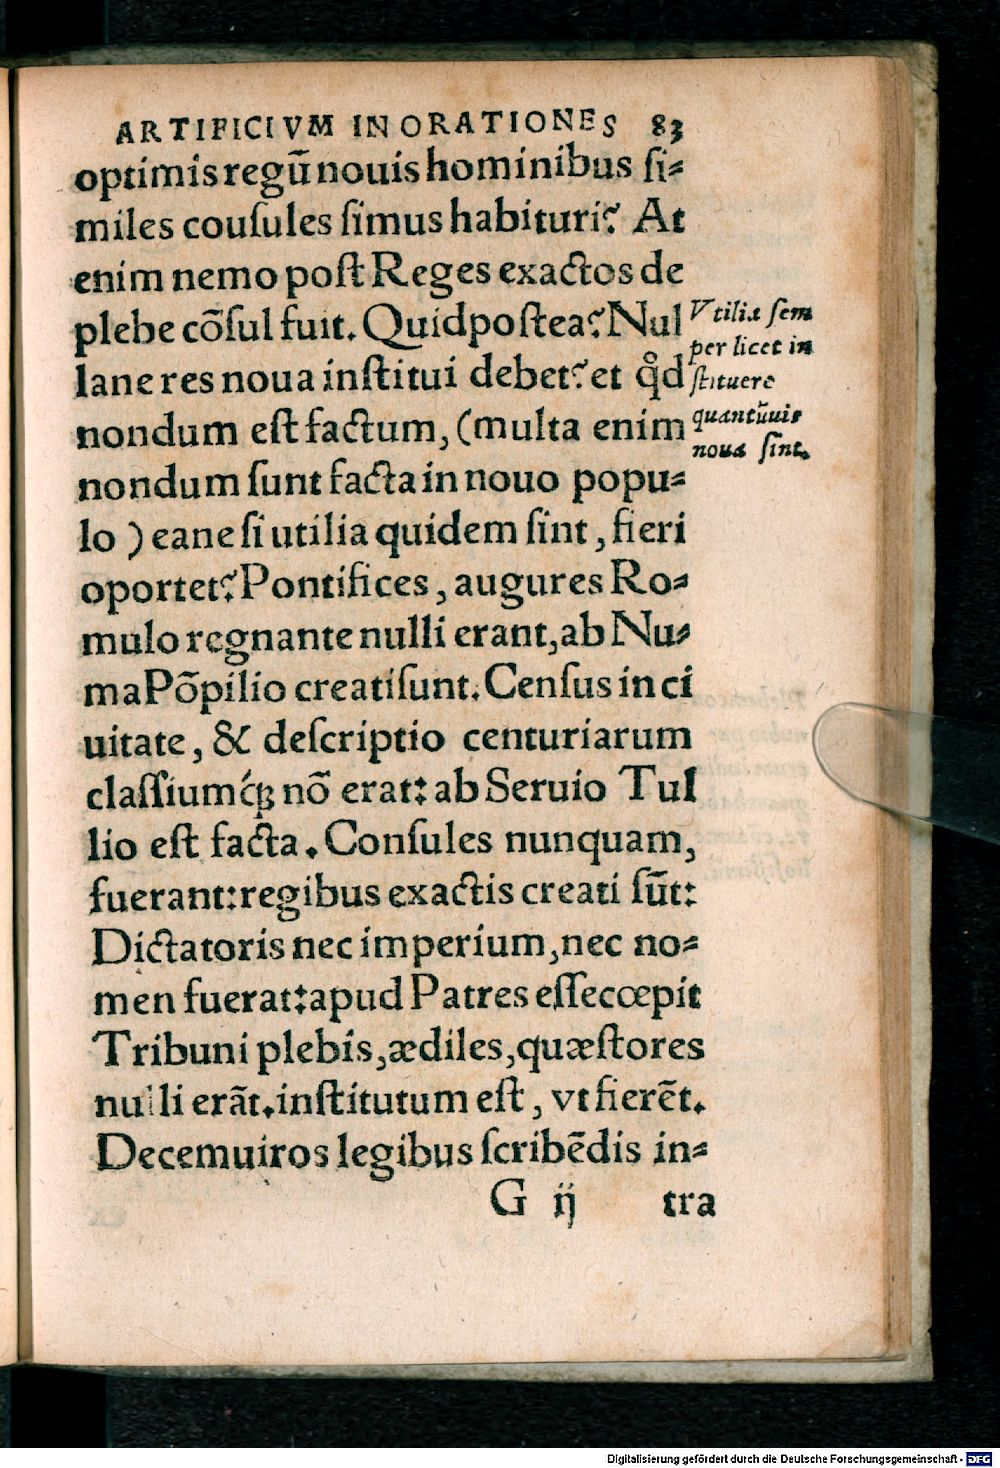 ARTIFICIVM IN ORATIONES 83
optimis regũ nouis hominibus ſi⸗
miles couſules ſimus habituri? At
enim nemo poſt Reges exactos de
plebe cõſul fuit. Quid poſtea? Nul
lane res noua inſtitui debet? et qͦd
nondum eſt factum, (multa enim
nondum ſunt facta in nouo popu⸗
lo) eane ſi utilia quidem ſint, fieri
oportet? Pontifices, augures Ro⸗
mulo regnante nulli erant, ab Nu⸗
ma Põpilio creati ſunt. Cenſus in ci
uitate, & deſcriptio centuriarum
claſſiumq́ꝫ nõ erat: ab Seruio Tul
lio eſt facta. Conſules nunquam,
fuerant: regibus exactis creati ſũt:
Dictatoris nec imperium, nec no⸗
men fuerat: apud Patres eſſe cœpit
Tribuni plebis, ædiles, quæſtores
nulli erãt. inſtitutum eſt, vt fierẽt.
Decemuiros legibus ſcribẽdis in⸗
G ij tra
Vtilia ſem
per licet in
ſtituere
quantũuis
noua ſint.
Digitalisierung gefördert durch die Deutsche Forschungsgemeinschaft - DFG